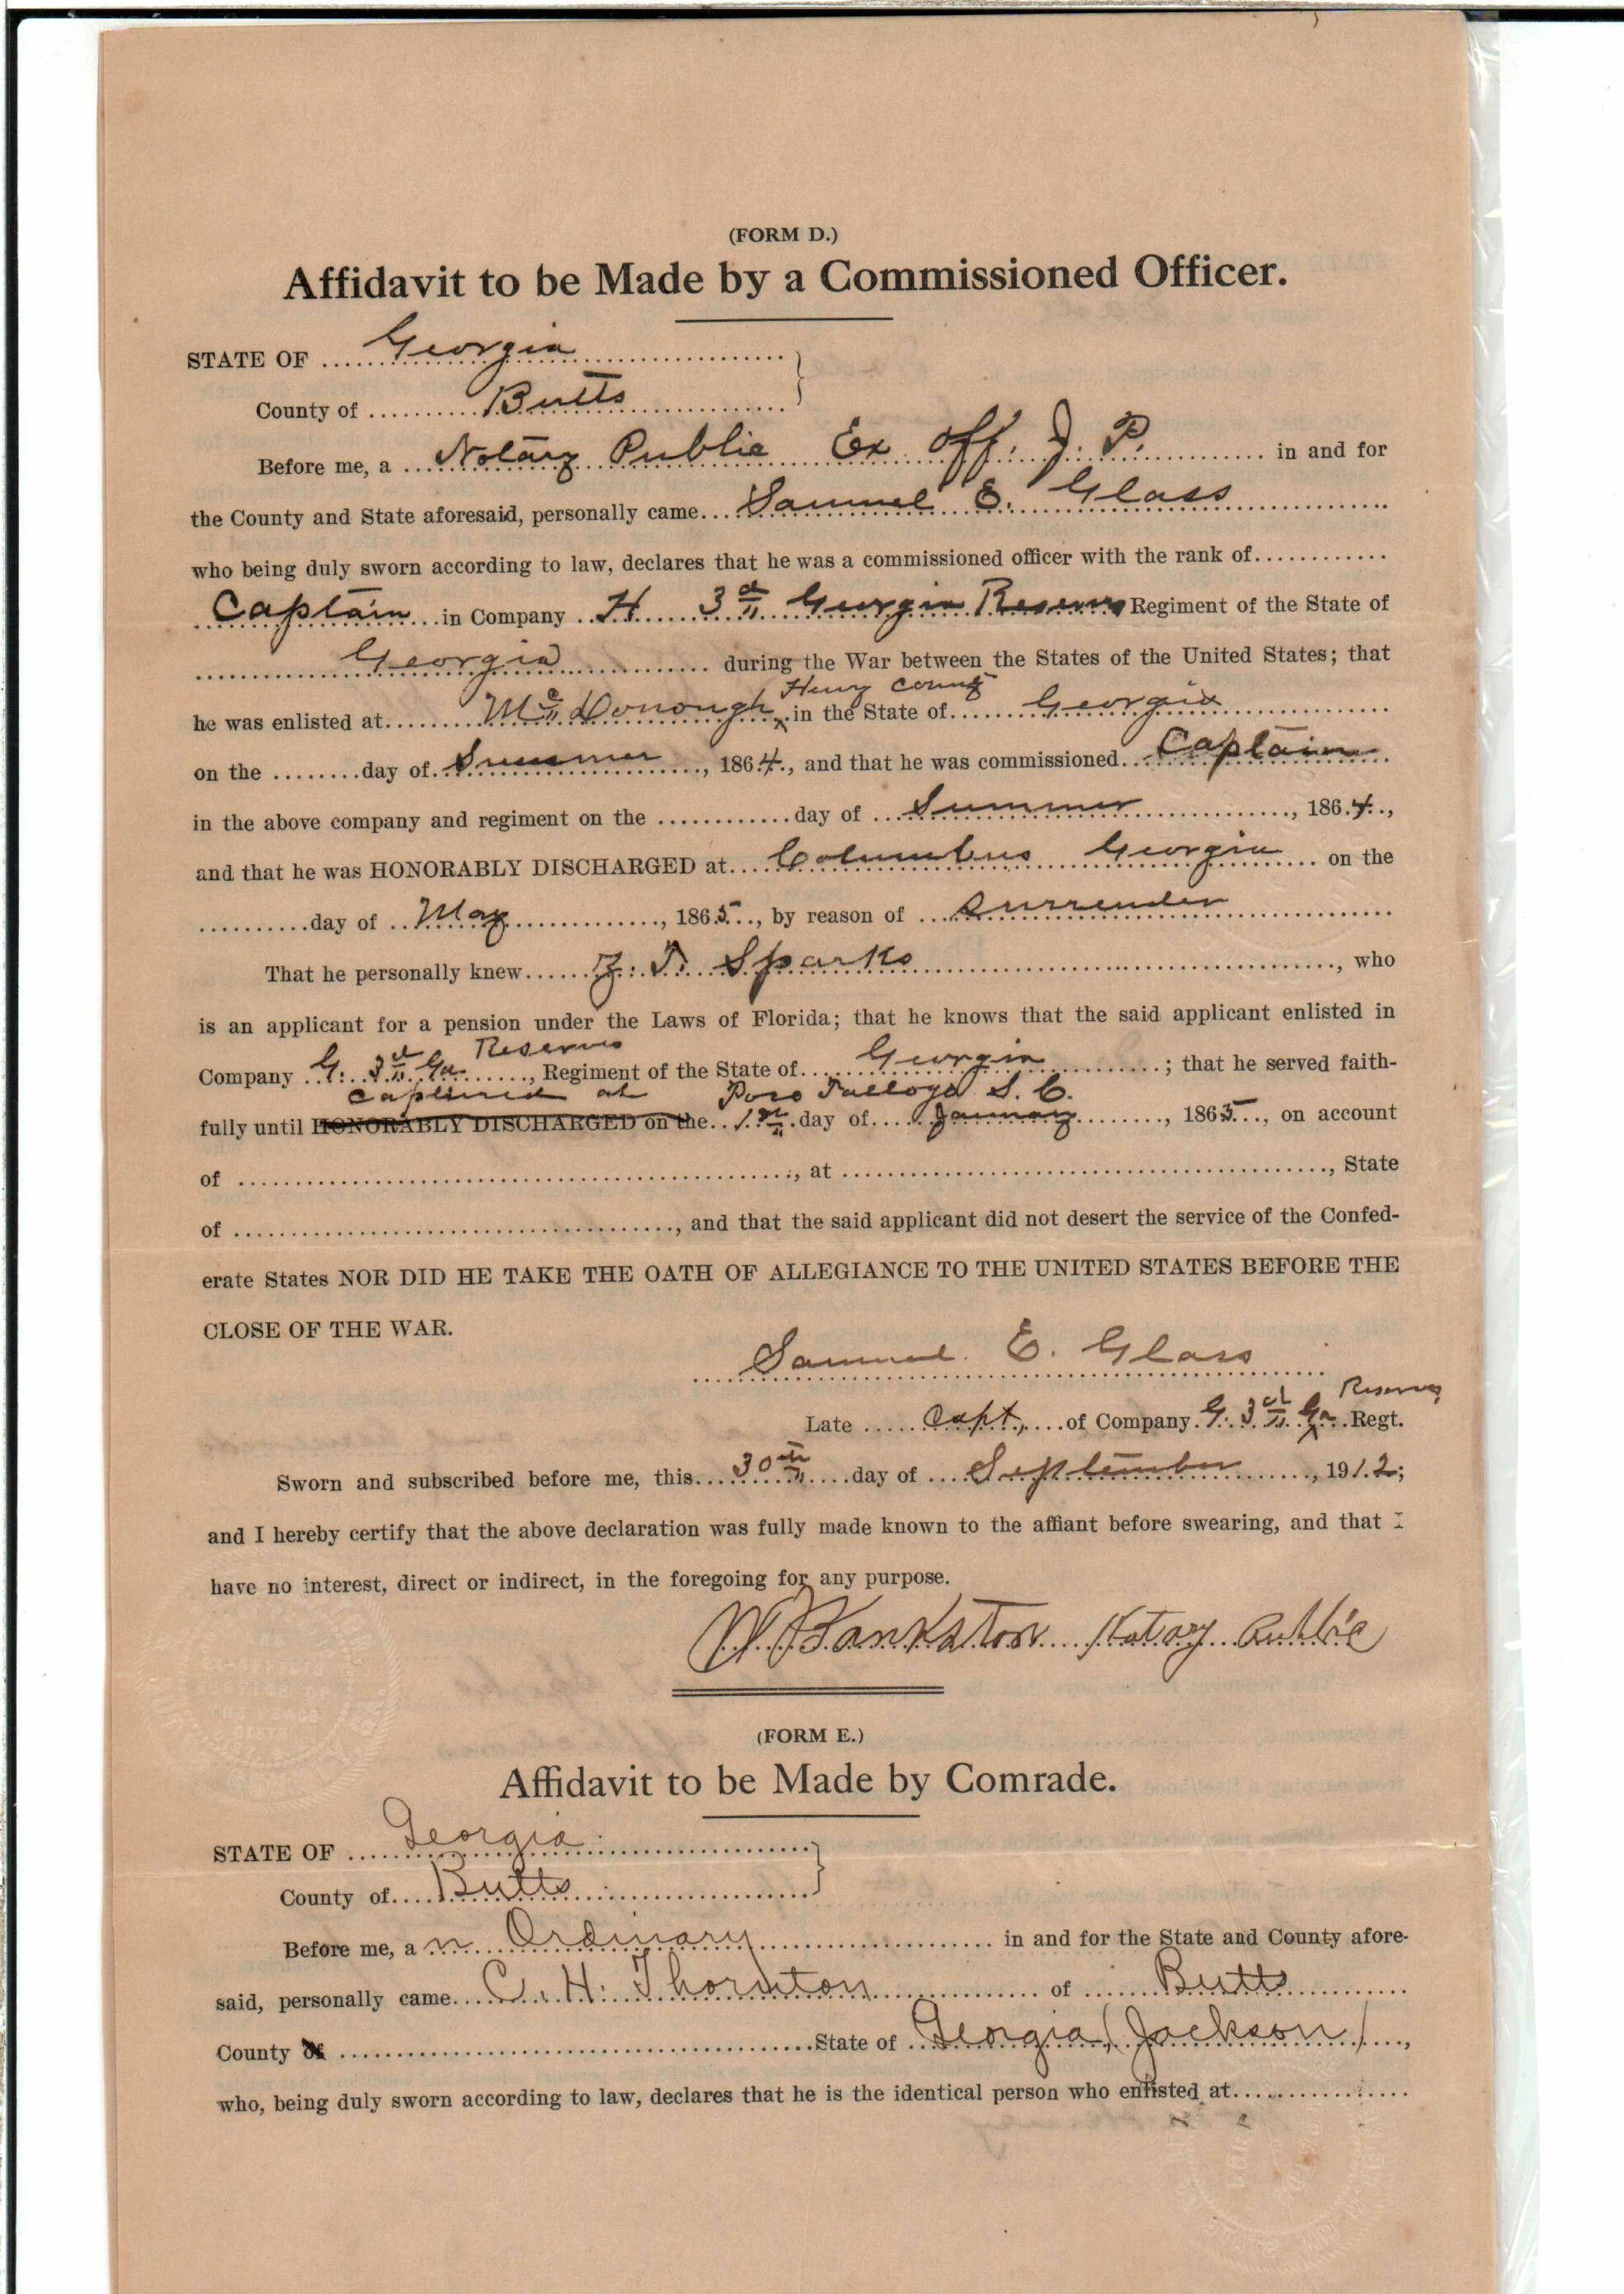 (FORM D.)
Affidavit to be Made by a Commissioned Officer.
STATE OF Georgia
County of Butts
Before me, a Notary Public Ex off. J. P. in and for
the County and State aforesaid, personally came Samuel E. Glass
who being duly sworn according to law, declares that he was a commissioned officer with the rank of
Captain in Company H 3d Georgia Reserves Regiment of the State of
Georgia during the War between the States of the United States; that
Henry County
he was enlisted at McDonough in the State of Georgia
on the day of Summer, 1864, and that he was commissioned Captain
in the above company and regiment on the day of Summer, 1864,
and that he was HONORABLY DISCHARGED at Columbus Georgia on the
day of May, 1865, by reason of Surrender
That he personally knew Z. T. Sparks, who
is an applicant for a pension under the Laws of Florida; that he knows that the said applicant enlisted in
Reserves
Company G. 3d Ga, Regiment of the State of Georgia; that he served faith-
captured at Poco Talloga S. C.
fully until HONORABLY DISCHARGED on the 1st day of January, 1865, on account
of , at , State
of , and that the said applicant did not desert the service of the Confed-
erate States NOR DID HE TAKE THE OATH OF ALLEGIANCE TO THE UNITED STATES BEFORE THE
CLOSE OF THE WAR.
Samuel E. Glass
Reserves
Late Capt, of Company G. 3d Ga Regt.
Sworn and subscribed before me, this 30th day of September, 1912;
and I hereby certify that the above declaration was fully made known to the affiant before swearing, and that I
have no interest, direct or indirect, in the foregoing for any purpose.
Bankston Notary Public
(FORM E.)
Affidavit to be Made by Comrade.
STATE OF Georgia
County of Butts
Before me, a n Ordinary in and for the State and County afore-
said, personally came C. H. Thornton of Butts
County of State of Georgia (Jackson),
who, being duly sworn according to law, declares that he is the identical person who enlisted at